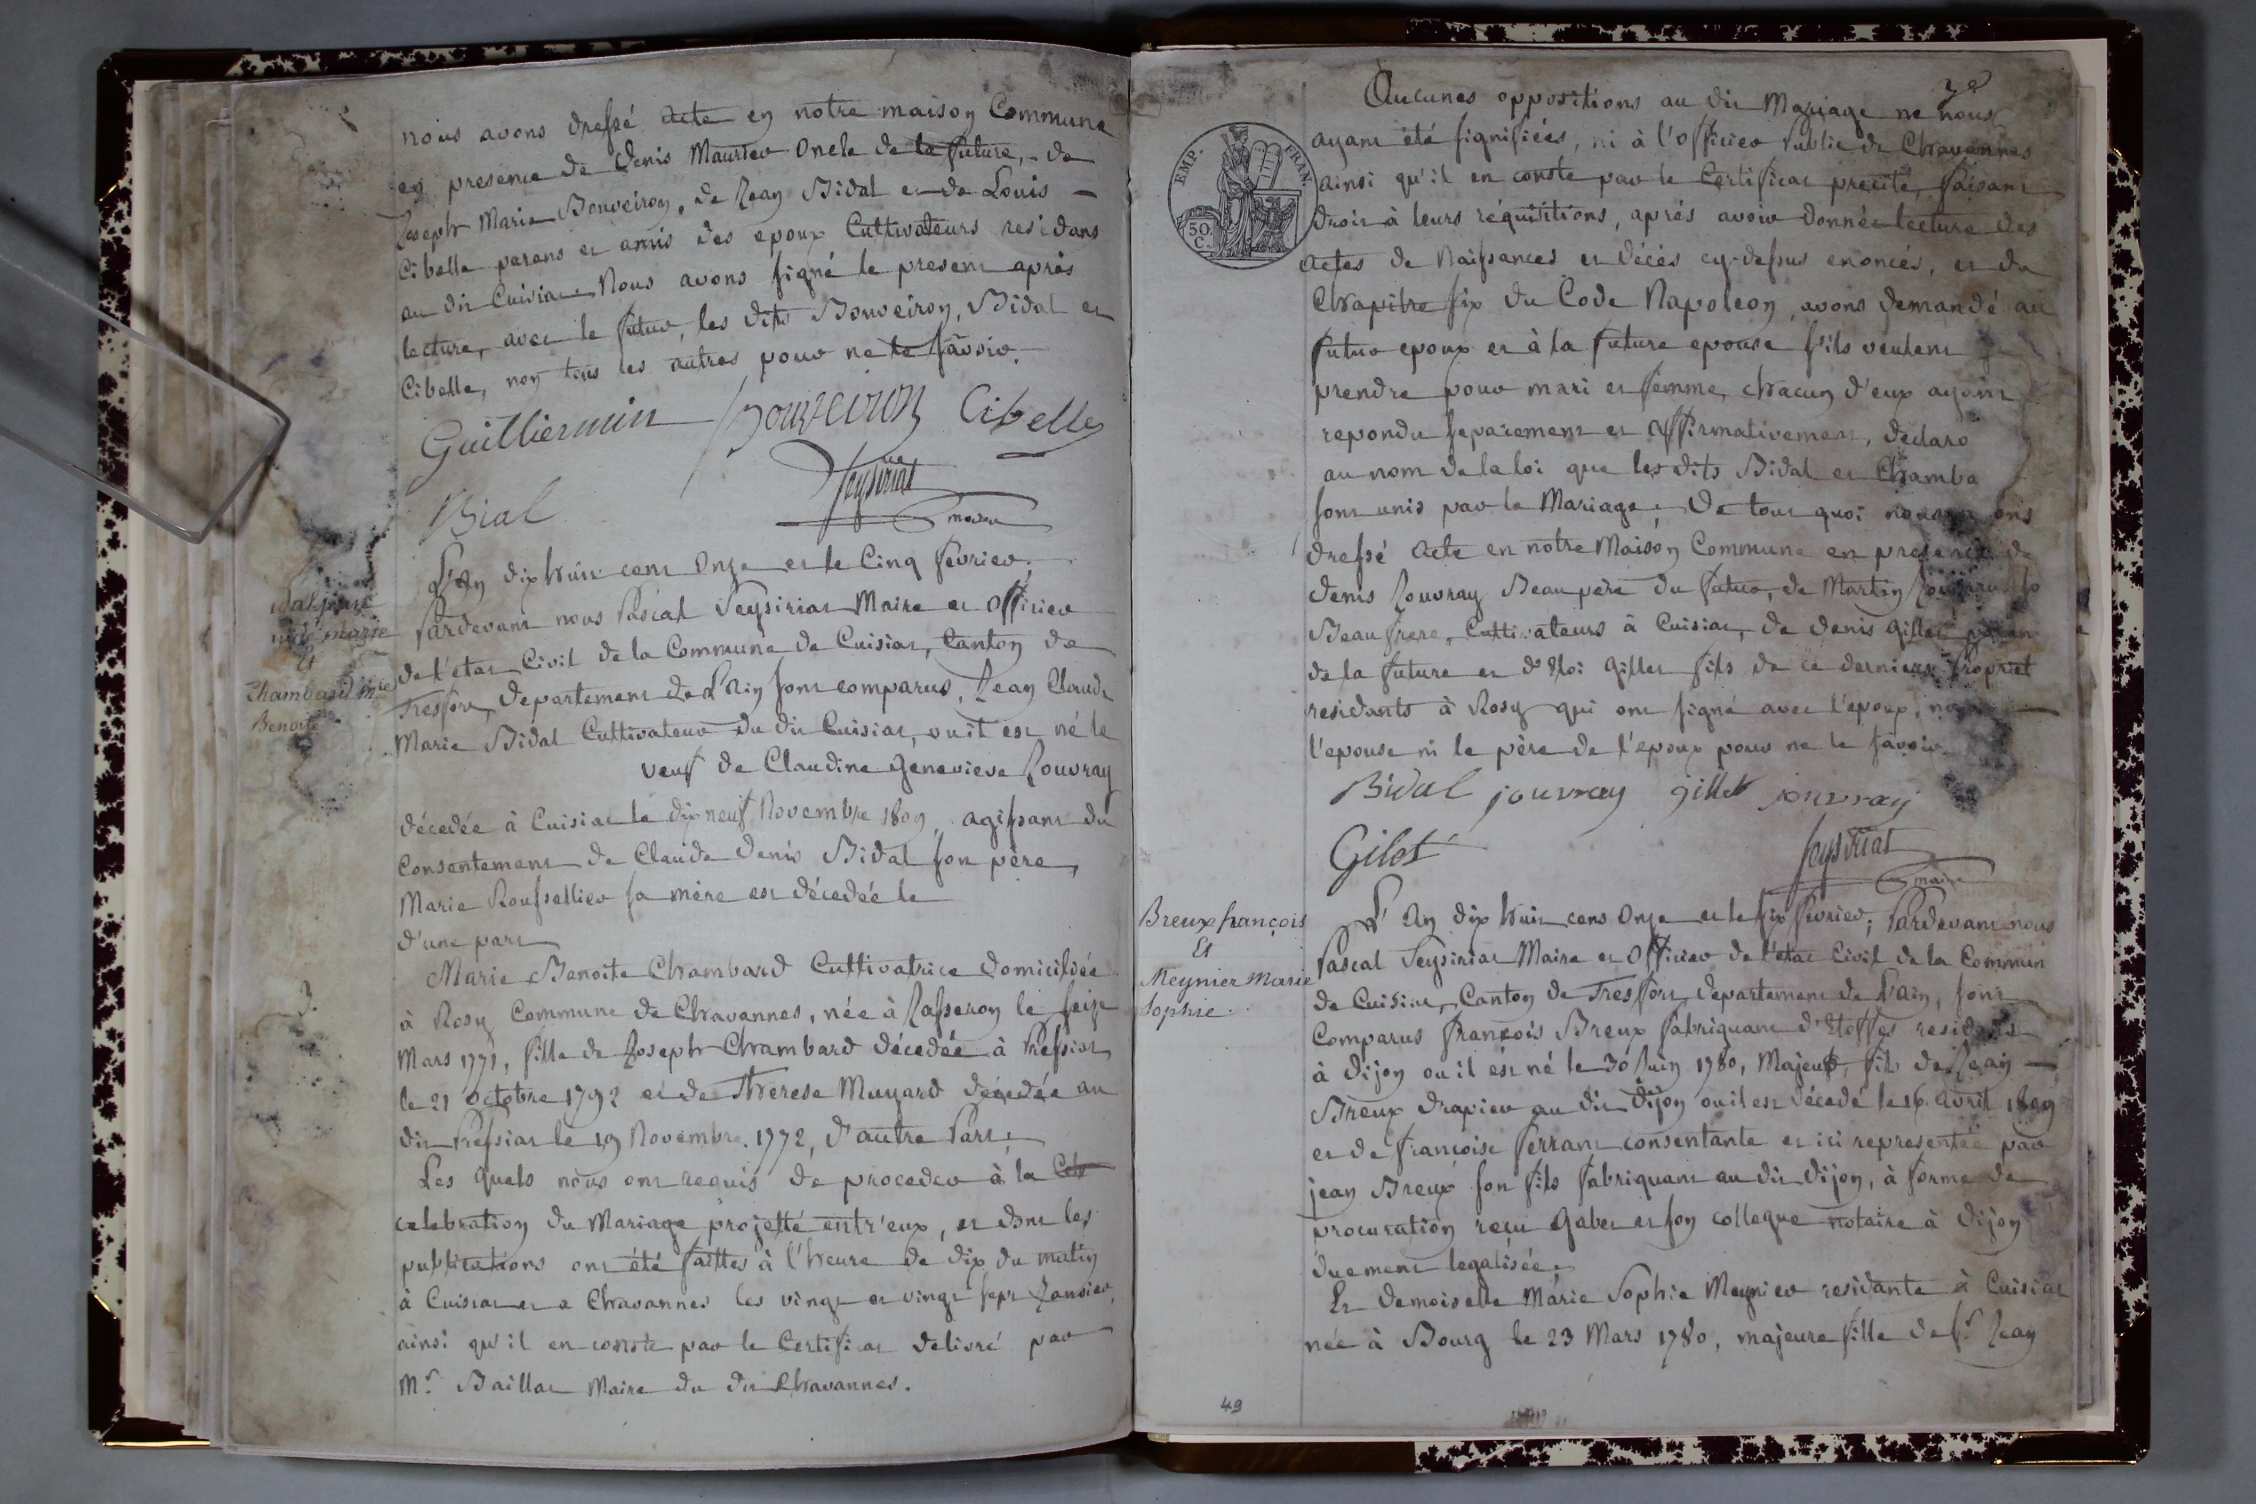 nous avons dressé acte en notre maison Commune
en presence de denis Maurier Oncle de la future, - de
Joseph Marie Bouveiron, de Jean Bidal et de Louis -
Cibelle parans et amis des epoux Cultivateurs residans
au dit Cuisiat. Nous avons signé le present après
lecture, avec le futur, les dits Bouveiron, Bidal et
Cibelle, non tous les autres pour ne le savoir.
Guilliermin Bouveiron Cibelle
Bial Seysiriat
maire
L'An dix huit cent Onze et le Cinq fevrier,
Pardevant nous Pascal Seysiriat Maire et Officier
de l'etat Civil de la Commune de Cuisiat, Canton de
Treffort, departement de l'Ain sont comparus, Jean Claude
Marie Bidal Cultivateur du dit Cuisiat, ou il est né le
veuf de Claudine Genevieve Jouvray
décedée à Cuisiat le dix neuf Novembre 1809, agissant du
Consentement de Claude denis Bidal son père,
Marie Roussellier sa mère est décedée le
d'une part
Marie Benoite Chambard Cultivatrice domiciliée
à Rosy Commune de Chavannes, née à Jasseron le seize
Mars 1771, fille de Joseph Chambard décedée à Pressiat
le 21 Octobre 1792 et de Therese Muyard décedée au
dit Pressiat le 19 Novembre 1772, d'autre Part,
Les quels nous ont requis de proceder à la Cele
celebration du Mariage projetté entr'eux, et dont les
publications ont été faittes à l'heure de dix du matin
à Cuisiat et a Chavannes les vingt et vingt sept Janvier,
ainsi qu'il en conste par le Certificat delivré par
Mr. Baillat Maire du dit Chavannes.
marie
Et
Chambard Mie
Benoite
Aucunes oppositions au dit Mariage ne nous
ayant été signifiées, ni à l'Officier Public de Chavannes
ainsi qu'il en conste par le Certificat precité, faisant
droit à leurs réquisitions, après avoir donnée lecture des
Actes de Naissances et décès cy-dessus enoncés, et du
Chapitre six du Code Napoleon, avons demandé au
futur epoux et à la future epouse s'ils veulent se
prendre pour mari et femme, chacun d'eux ayant
repondu separement et affirmativement, declaro
au nom de la loi que les dits Bidal et Chamba
sont unis par le Mariage. De tout quoi nous ons
dressé Acte en notre Maison Commune en presence de
denis Jouvray Beau père du futur, de Martin Jouvray
Beau frere, Cultivateurs à Cuisiat, de denis Gillet
de la future et d'Eloi Gillet fils de ce dernier Propriet
residants à Rosy qui ont signé avec l'epoux, non
l'epouse ni le père de l'epoux pour ne le savoir
Bidal jouvray gillet jouvray
Gilet Seysiriat
maire
EMP. FRAN.
50 C.
Breux françois
Et
Meynier Marie
Sophie.
L'An dix huit cent Onze et le six fevrier; Pardevant nous
Pascal Seysiriat Maire et Officier de l'état Civil de la Commun
de Cuisiat, Canton de Treffort, departement de l'ain, sont
Comparus françois Breux fabriquant d'Etoffes residant
à dijon ou il est né le 30 Juin 1780, Majeur, fils de Jean -
Breux drapier au dit Dijon ou il est décedé le 16 avril 1809
et de françoise ferrant consentante et ici representée par
jean Breux son fils fabriquant au dit dijon, à forme de
procuration reçu Gabet et son collegue notaire à dijon
duement legalisée.
Et demoiselle Marie Sophie Meynier residante à Cuisiat
née à Bourg le 23 Mars 1780, majeure fille de Sr. Jean
49